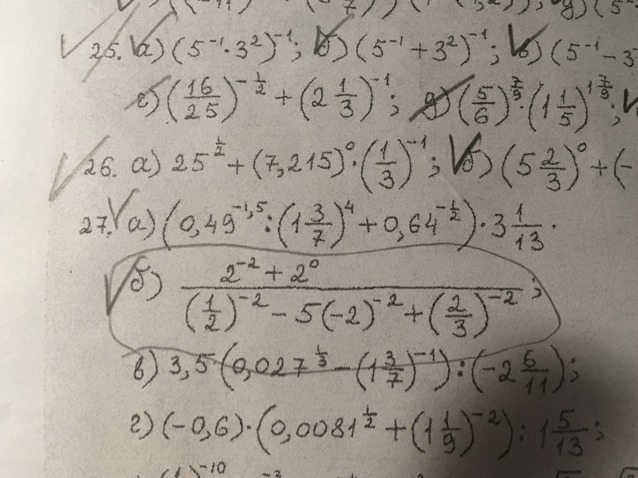 25. а) (5⁻¹·3²)⁻¹; б) (5⁻¹ + 3²)⁻¹; в) (5⁻¹ − 3
г) (16/25)^(−1/2) + (2 1/3)⁻¹; д) (5/6)^(7/9)·(1 1/5)^(1 7/9);
26. а) 25^(1/2) + (7,215)⁰·(1/3)⁻¹; б) (5 2/3)⁰ + (−
27. а) (0,49^(−1,5) : (1 3/7)⁴ + 0,64^(−1/2))·3 1/13.
б) (2⁻² + 2⁰)/((1/2)⁻² − 5(−2)⁻² + (2/3)⁻²);
в) 3,5(0,027^(1/3) − (1 3/7)⁻¹) : (−2 6/11);
г) (−0,6)·(0,0081^(1/2) + (1 1/9)⁻²) : 1 5/13;